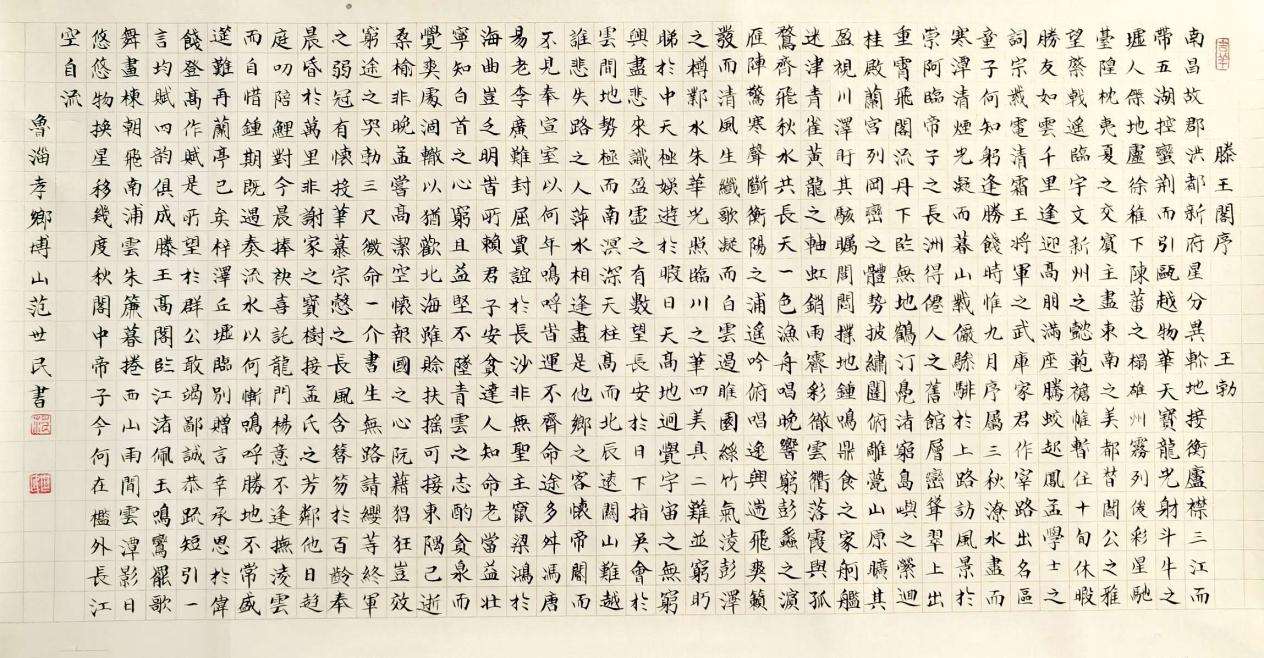 滕王閣序 王勃
南昌故郡洪都新府星分異軫地接衡廬襟三江而
帶五湖控蠻荆而引甌越物華天寶龍光射斗牛之
墟人傑地靈徐稚下陳蕃之榻雄州霧列俊彩星馳
臺隍枕夷夏之交賓主盡東南之美都督閻公之雅
望棨戟遙臨宇文新州之懿範襜帷暫住十旬休暇
勝友如雲千里逢迎高朋滿座騰蛟起鳳孟學士之
詞宗紫電清霜王將軍之武庫家君作宰路出名區
童子何知躬逢勝餞時惟九月序屬三秋潦水盡而
寒潭清煙光凝而暮山紫儼驂騑於上路訪風景於
崇阿臨帝子之長洲得僊人之舊館層巒聳翠上出
重霄飛閣流丹下臨無地鶴汀鳧渚窮島嶼之縈迴
桂殿蘭宮列岡巒之體勢披繡闥俯雕甍山原曠其
盈視川澤盱其駭矚閭閻撲地鐘鳴鼎食之家舸艦
迷津青雀黃龍之軸虹銷雨霽彩徹雲衢落霞與孤
鶩齊飛秋水共長天一色漁舟唱晚響窮彭蠡之濱
雁陣驚寒聲斷衡陽之浦遙吟俯唱逸興遄飛爽籟
發而清風生纖歌凝而白雲遏睢園綠竹氣淩彭澤
之樽鄴水朱華光照臨川之筆四美具二難並窮眄
睇於中天極娛遊於暇日天高地迥覺宇宙之無窮
興盡悲來識盈虛之有數望長安於日下指吳會於
雲間地勢極而南溟深天柱高而北辰遠關山難越
誰悲失路之人萍水相逢盡是他鄉之客懷帝閽而
不見奉宣室以何年嗚呼時運不齊命途多舛馮唐
易老李廣難封屈賈誼於長沙非無聖主竄梁鴻於
海曲豈乏明時所賴君子安貧達人知命老當益壯
寧知白首之心窮且益堅不墜青雲之志酌貪泉而
覺爽處涸轍以猶歡北海雖賒扶搖可接東隅已逝
桑榆非晚孟嘗高潔空懷報國之心阮藉猖狂豈效
窮途之哭勃三尺微命一介書生無路請纓等終軍
之弱冠有懷投筆慕宗愨之長風舍簪笏於百齡奉
晨昏於萬里非謝家之寶樹接孟氏之芳鄰他日趨
庭叨陪鯉對今晨捧袂喜託龍門楊意不逢撫淩雲
而自惜鍾期既遇奏流水以何慚嗚呼勝地不常盛
筵難再蘭亭已矣梓澤丘墟臨別贈言幸承恩於偉
餞登高作賦是所望於群公敢竭鄙誠恭疏短引一
言均賦四韵俱成滕王高閣臨江渚佩玉鳴鸞罷歌
舞畫棟朝飛南浦雲朱簾暮捲西山雨閒雲潭影日
悠悠物換星移幾度秋閣中帝子今何在檻外長江
空自流
魯淄孝鄉博山范世民書